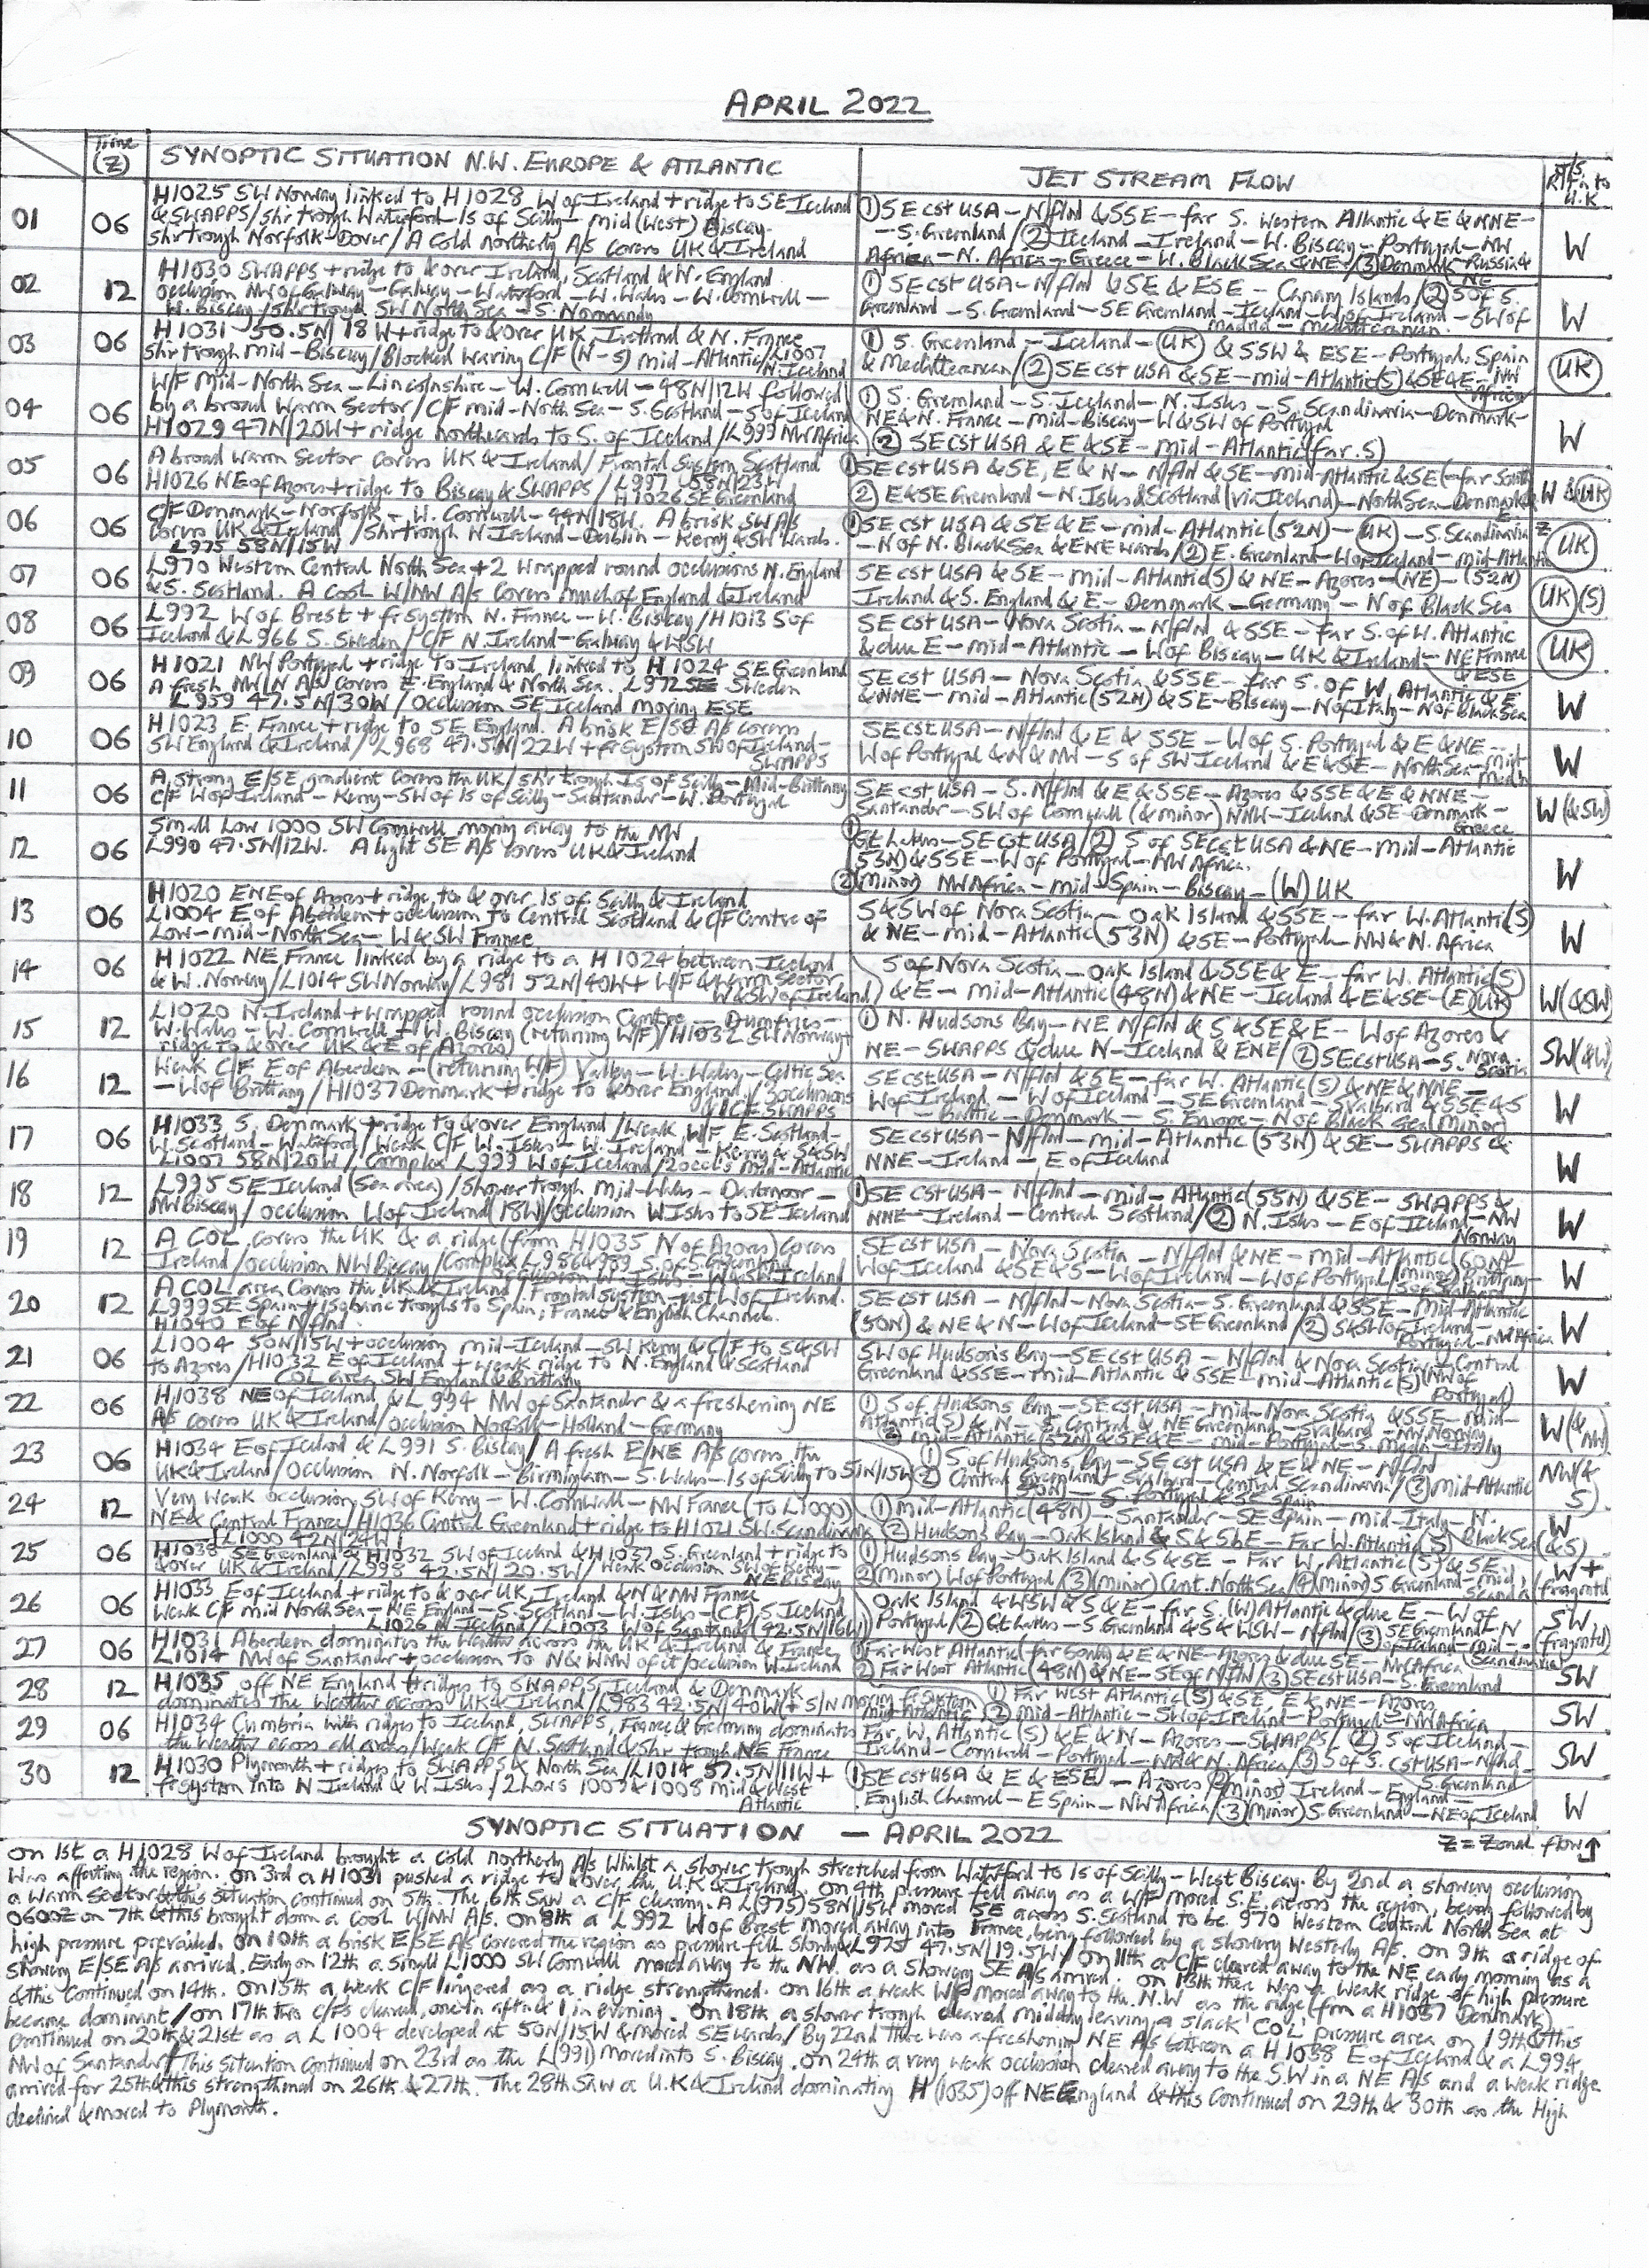 APRIL 2022
Time (Z)
SYNOPTIC SITUATION N.W. EUROPE & ATLANTIC
JET STREAM FLOW
J/S Rltn to U.K
01
06
H1025 SW Norway linked to H1028 W of Ireland + ridge to SE Iceland
& SWAPPS/Shr trough Waterford - Is of Scilly - mid (West) Biscay.
Shr trough Norfolk-Dover/A Cold northerly A/S covers UK & Ireland
① SE cst USA - N/flnd & SSE - far S. Western Atlantic & E & NNE -
- S. Greenland/② Iceland - Ireland - W. Biscay - Portugal - NW
Africa - N. Africa - Greece - W. Black Sea & NE/③ Denmark - Russia & NE
W
02
12
H1030 SWAPPS + ridge to & over Ireland, Scotland & N. England
Occlusion NW of Galway - Galway - Waterford - W. Wales - W. Cornwall -
W. Biscay/Shr trough SW North Sea - S. Normandy
① SE cst USA - N/flnd & SE & ESE - Canary Islands/② S of S.
Greenland - S. Greenland - SE Greenland - Iceland - W of Ireland - SW of
Madrid - Mediterranean.
W
03
06
H1031 - 50.5N/18W + ridge to & over UK, Ireland & N. France
Shr trough mid-Biscay/Blocked Waving C/F (N-S) mid-Atlantic/L1007
N. Iceland
① S. Greenland - Iceland - UK & SSW & ESE - Portugal, Spain
& Mediterranean/② SE cst USA & SE - mid-Atlantic (S) & SE & E - NW Africa
UK
04
06
W/F Mid-North Sea - Lincolnshire - W. Cornwall - 48N/12W followed
by a broad Warm Sector/C/F mid-North Sea - S. Scotland - S of Iceland
H1029 47N/20W + ridge northwards to S. of Iceland/L999 NW Africa
① S. Greenland - S. Iceland - N. Isles - S. Scandinavia - Denmark -
NE & N. France - mid-Biscay - W & SW of Portugal
② SE cst USA & E & SE - mid-Atlantic (far S)
W
05
06
A broad warm sector covers UK & Ireland/Frontal System Scotland
H1026 NE of Azores + ridge to Biscay & SWAPPS/L997 58N/23W
H1026 SE Greenland
① SE cst USA & SE, E & N - N/flnd & SE - mid-Atlantic & SE (far South)
② E & SE Greenland - N. Isles & Scotland (via Iceland) - North Sea - Denmark
W & UK
06
06
C/F Denmark - Norfolk - W. Cornwall - 44N/18W. A brisk SW A/S
covers UK & Ireland/Shr trough N. Ireland - Dublin - Kerry & SW wards.
L975 58N/15W
① SE cst USA & SE & E - mid-Atlantic (52N) - UK - S. Scandinavia
- N of N. Black Sea & ENE wards/② E. Greenland - W of Iceland - mid-Atlantic
Z
UK
07
06
L970 Western Central North Sea + 2 wrapped round occlusions N. England
& S. Scotland. A cool W/NW A/S covers much of England & Ireland
SE cst USA & SE - mid-Atlantic (S) & NE - Azores - (NE) - (52N)
Ireland & S. England & E - Denmark - Germany - N of Black Sea
UK (S)
08
06
L992 W of Brest + fr System N. France - W. Biscay/H1013 S of
Iceland & L966 S. Sweden/C/F N. Ireland - Galway & WSW
SE cst USA - Nova Scotia - N/flnd & SSE - far S. of W. Atlantic
& due E - mid-Atlantic - W of Biscay - UK & Ireland - NE France
& ESE
UK
09
06
H1021 NW Portugal + ridge to Ireland, linked to H1024 SE Greenland
A fresh NW/N A/S covers E. England & North Sea. L972 SE Sweden
L959 47.5N/30W/Occlusion SE Iceland moving ESE
SE cst USA - Nova Scotia & SSE - far S. of W. Atlantic & E
& NNE - mid-Atlantic (52N) & SE - Biscay - N of Italy - N of Black Sea
W
10
06
H1023 E. France + ridge to SE England. A brisk E/SE A/S covers
SW England & Ireland/L968 47.5N/22W + fr System SW of Ireland -
SWAPPS
SE cst USA - N/flnd & E & SSE - W of S. Portugal & E & NE -
W of Portugal & N & NW - S of SW Ireland & E & SE - North Sea - mid
Medn
W
11
06
A strong E/SE gradient covers the UK/Shr trough Is of Scilly - Mid-Brittany
C/F W of Ireland - Kerry - SW of Is of Scilly - Santander - W. Portugal
SE cst USA - S. N/flnd & E & SSE - Azores & SSE & E & NNE -
Santander - SW of Cornwall (& minor) NNW - Iceland & SE - Denmark -
Greece
W (& SW)
12
06
Small Low 1000 SW Cornwall moving away to the NW
L990 47.5N/12W. A light SE A/S covers UK & Ireland
① Gt Lakes - SE cst USA/② S of SE cst USA & NE - mid-Atlantic
(53N) & SSE - W of Portugal - NW Africa.
② (Minor) NW Africa - mid-Spain - Biscay - (W) UK
W
13
06
H1020 ENE of Azores + ridge to & over Is of Scilly & Ireland
L1004 E of Aberdeen + occlusion to Central Scotland & C/F Centre of
Low - mid-North Sea - W & SW France
S & SW of Nova Scotia - Oak Island & SSE - far W. Atlantic (S)
& NE - mid-Atlantic (53N) & SE - Portugal - NW & N. Africa
W
14
06
H1022 NE France linked by a ridge to a H1024 between Iceland
& W. Norway/L1014 SW Norway/L981 52N/40W + W/F & Warm Sector
W & SW of Ireland
S of Nova Scotia - Oak Island & SSE & E - far W. Atlantic (S)
& E - mid-Atlantic (48N) & NE - Iceland & E & SE - (E) UK
W (& SW)
15
12
L1020 N. Ireland + wrapped round occlusion Centre - Dumfries -
W. Wales - W. Cornwall + W. Biscay (returning W/F)/H1032 SW Norway +
ridge to & over UK & E of Azores
① N. Hudsons Bay - NE N/flnd & S & SE & E - W of Azores &
NE - SWAPPS & due N - Iceland & ENE/② SE cst USA - S. Nova
Scotia
SW (& W)
16
12
Weak C/F E of Aberdeen - (returning W/F) Valley - W. Wales - Celtic Sea
- W of Brittany/H1037 Denmark + ridge to & over England/3 occlusions
SE cst USA - N/flnd & SE - far W. Atlantic (S) & NE & NNE -
W of Ireland - W of Iceland - SE Greenland - Svalbard & SSE & S
- Baltic - Denmark - S. Europe - N of Black Sea (Minor)
W
17
06
H1033 S. Denmark + ridge to & over England/Weak W/F E. Scotland -
W. Scotland - Waterford/Weak C/F W. Isles - W. Ireland - Kerry & S & SW
L1007 58N/20W/Complex L999 W of Iceland/2 occls mid-Atlantic
SE cst USA - N/flnd - mid-Atlantic (53N) & SE - SWAPPS &
NNE - Ireland - E of Iceland
W
18
12
L995 SE Iceland (Sea area)/Shower trough Mid-Wales - Dartmoor -
NW Biscay/Occlusion W of Ireland (18W)/Occlusion W Isles to SE Iceland
① SE cst USA - N/flnd - mid-Atlantic (55N) & SE - SWAPPS &
NNE - Ireland - Central Scotland/② N. Isles - E of Iceland - NW
Norway
W
19
12
A COL covers the UK & a ridge (from H1035 N of Azores) covers
Ireland/occlusion NW Biscay/Complex L986 & 989 S. of S. Greenland
occlusion W. Isles - W & SW Ireland
SE cst USA - Nova Scotia - N/flnd & NE - mid-Atlantic (60N) -
W of Iceland & SE & S - W of Ireland - W of Portugal
W
20
12
A COL area covers the UK & Ireland/Frontal System just W of Ireland.
L999 SE Spain + isobaric troughs to Spain, France & English Channel.
H1040 E of N/flnd.
SE cst USA - N/flnd - Nova Scotia - S. Greenland & SSE - Mid-Atlantic
(50N) & NE & N - W of Iceland - SE Greenland/② S & SW of Ireland -
Portugal - NW Africa
W
21
06
L1004 50N/15W + occlusion mid-Iceland - SW Kerry & C/F to S & SW
to Azores/H1032 E of Iceland + weak ridge to N. England & Scotland
COL area SW England & Brittany
SW of Hudson's Bay - SE cst USA - N/flnd & Nova Scotia + Central
Greenland & SSE - Mid-Atlantic & SSE - mid-Atlantic (S) (NW of
Portugal)
W
22
06
H1038 NE of Iceland & L994 NW of Santander & a freshening NE
A/S covers UK & Ireland/occlusion Norfolk - Holland - Germany
① S of Hudsons Bay - SE cst USA - mid-Nova Scotia & SSE - mid-
Atlantic (S) & N - S. Central & NE Greenland - Svalbard - NW Norway
② mid-Atlantic (52N) & SE & E - mid-Portugal - S. Medn - Italy
W (& NW)
23
06
H1034 E of Iceland & L991 S. Biscay/A fresh E/NE A/S covers the
UK & Ireland/Occlusion N. Norfolk - Birmingham - S. Wales - Is of Scilly to 50N/15W
① S of Hudsons Bay - SE cst USA & E & NE - N/flnd
② Central Greenland - Svalbard - Central Scandinavia/③ mid-Atlantic
(50N) - S. Portugal & SE Spain
NW (& S)
24
12
Very weak occlusion SW of Kerry - W. Cornwall - NW France (to L1000)
NE & Central France/H1036 Central Greenland + ridge to H1021 SW Scandinavia
L1000 42N/24W
① Mid-Atlantic (48N) - Santander - SE Spain - mid-Italy - N.
Black Sea
② Hudsons Bay - Oak Island & S & SbE - Far W. Atlantic (S)
W (& S)
25
06
H1038 SE Greenland & H1032 SW of Iceland & H1037 S. Greenland + ridge to
& over UK & Ireland/L998 42.5N/20.5W/Weak occlusion SW of
NE Biscay
① Hudsons Bay - Oak Island & S & SE - Far W. Atlantic (S) & SE
② (minor) W of Portugal/③ (minor) Cent. North Sea/④ (minor) S Greenland - mid
Scand
W + (fragmntd)
26
06
H1033 E of Iceland + ridge to & over UK, Ireland & N & NW France
Weak C/F mid North Sea - NE England - S. Scotland - W. Isles - (CF) S Iceland
L1026 N. Iceland/L1003 W of Santander (42.5N/16W)
Oak Island & WSW & S & E - far S. (W) Atlantic & due E - W of
Portugal/② Gt Lakes - S Greenland & S & WSW - N/flnd/③ SE Greenland - N
of Iceland - Mid-
Scandinavia
SW (fragmntd)
27
06
H1031 Aberdeen dominates the weather across the UK & Ireland & France
L1014 NW of Santander + occlusion to N & WNW of it/occlusion W. Ireland
① Far West Atlantic (far South) & E & NE - Azores & due SE - NW Africa
② Far West Atlantic (48N) & NE - SE of N/flnd/③ SE cst USA - S. Greenland
SW
28
12
H1035 off NE England + ridges to SWAPPS, Iceland & Denmark
dominates the weather across UK & Ireland/L983 42.5N/40W (+ S/N moving fr System
mid-Atlantic)
① Far West Atlantic (S) & SE, E & NE - Azores
② mid-Atlantic - SW of Ireland - Portugal - NW Africa
SW
29
06
H1034 Cumbria with ridges to Iceland, SWAPPS, France & Germany dominates
the weather across all areas/Weak C/F N. Scotland & Shr trough NE France
Far W. Atlantic (S) & E & N - Azores - SWAPPS/② S of Iceland -
Ireland - Cornwall - Portugal - NW & N. Africa/③ S of S. cst USA - N/flnd -
S. Greenland
SW
30
12
H1030 Plymouth + ridges to SWAPPS & North Sea/L1014 57.5N/11W +
fr System into N Ireland & W Isles/2 Lows 1007 & 1008 mid & West
Atlantic
① SE cst USA & E & ESE - Azores ② (Minor) Ireland - England -
English Channel - E Spain - NW Africa/③ (Minor) S Greenland - NE of Iceland
W
SYNOPTIC SITUATION — APRIL 2022
Z = Zonal flow ↑
On 1st a H1028 W of Ireland brought a cold northerly A/S whilst a shower trough stretched from Watrford to Is of Scilly - West Biscay. By 2nd a showery occlusion
was affecting the region. On 3rd a H1031 pushed a ridge to & over the U.K & Ireland. On 4th pressure fell away as a W/F moved S.E. across the region, being followed by
a warm sector & this situation continued on 5th. The 6th saw a C/F clearing. A L(975) 58N/15W moved SE across S. Scotland to be 970 Western Central North Sea at
0600Z on 7th & this brought down a cool W/NW A/S. On 8th a L992 W of Brest moved away into France, being followed by a showery Westerly A/S. On 9th a ridge of
high pressure prevailed. On 10th a brisk E/SE A/S covered the region as pressure fell slowly & L975 47.5N/19.5W/On 11th a C/F cleared away to the NE early morning as a
showery E/SE A/S arrived. Early on 12th a small L1000 SW Cornwall moved away to the NW. as a showery SE A/S arrived. On 13th there was a weak ridge of high pressure
& this continued on 14th. On 15th a weak C/F lingered as a ridge strengthened. On 16th a weak W/F moved away to the N.W as the ridge (from a H1037 Denmark)
became dominant/on 17th two C/Fs cleared, one in aftn & 1 in evening. On 18th a shower trough cleared midday leaving a slack 'COL' pressure area on 19th & this
continued on 20th & 21st as a L1004 developed at 50N/15W & moved SE wards/By 22nd there was a freshening NE A/S between a H1038 E of Iceland & a L994
NW of Santander/This situation continued on 23rd as the L(991) moved into S. Biscay. On 24th a very weak occlusion cleared away to the S.W in a NE A/S and a weak ridge
arrived for 25th & this strengthened on 26th & 27th. The 28th saw a U.K & Ireland dominating H(1035) off NE England & this continued on 29th & 30th as the High
declined & moved to Plymouth.